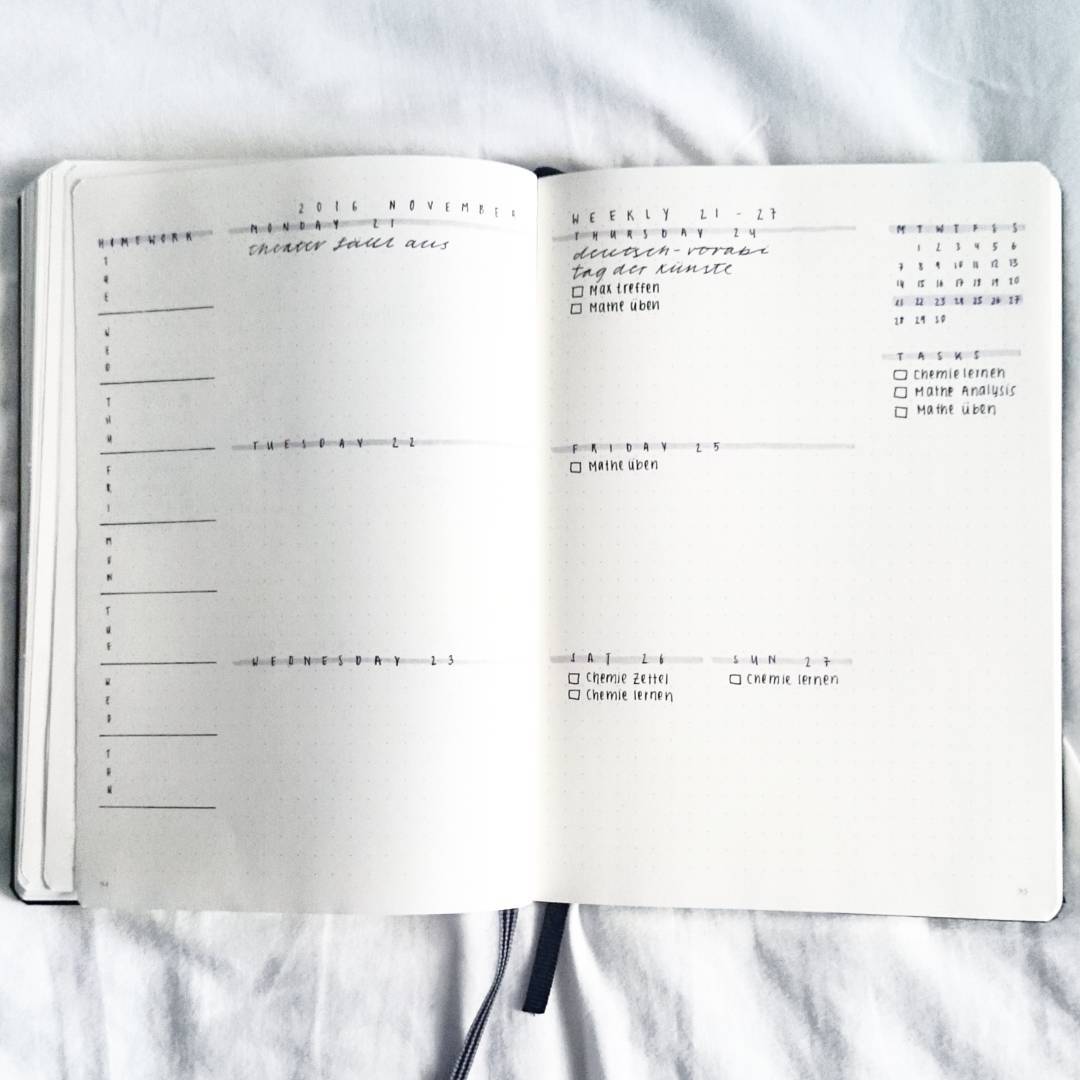 2016 NOVEMBER
HOMEWORK
TUE
WED
THU
FRI
MON
TUE
WED
THU
MONDAY 21
theater fällt aus
TUESDAY 22
WEDNESDAY 23
94
WEEKLY 21-27
THURSDAY 24
deutsch-vorabi
tag der künste
Max treffen
Mathe üben
FRIDAY 25
Mathe üben
SAT 26
Chemie Zettel
Chemie lernen
SUN 27
Chemie lernen
M T W T F S S
1 2 3 4 5 6
7 8 9 10 11 12 13
14 15 16 17 18 19 20
21 22 23 24 25 26 27
28 29 30
TASKS
Chemie lernen
Mathe Analysis
Mathe üben
95